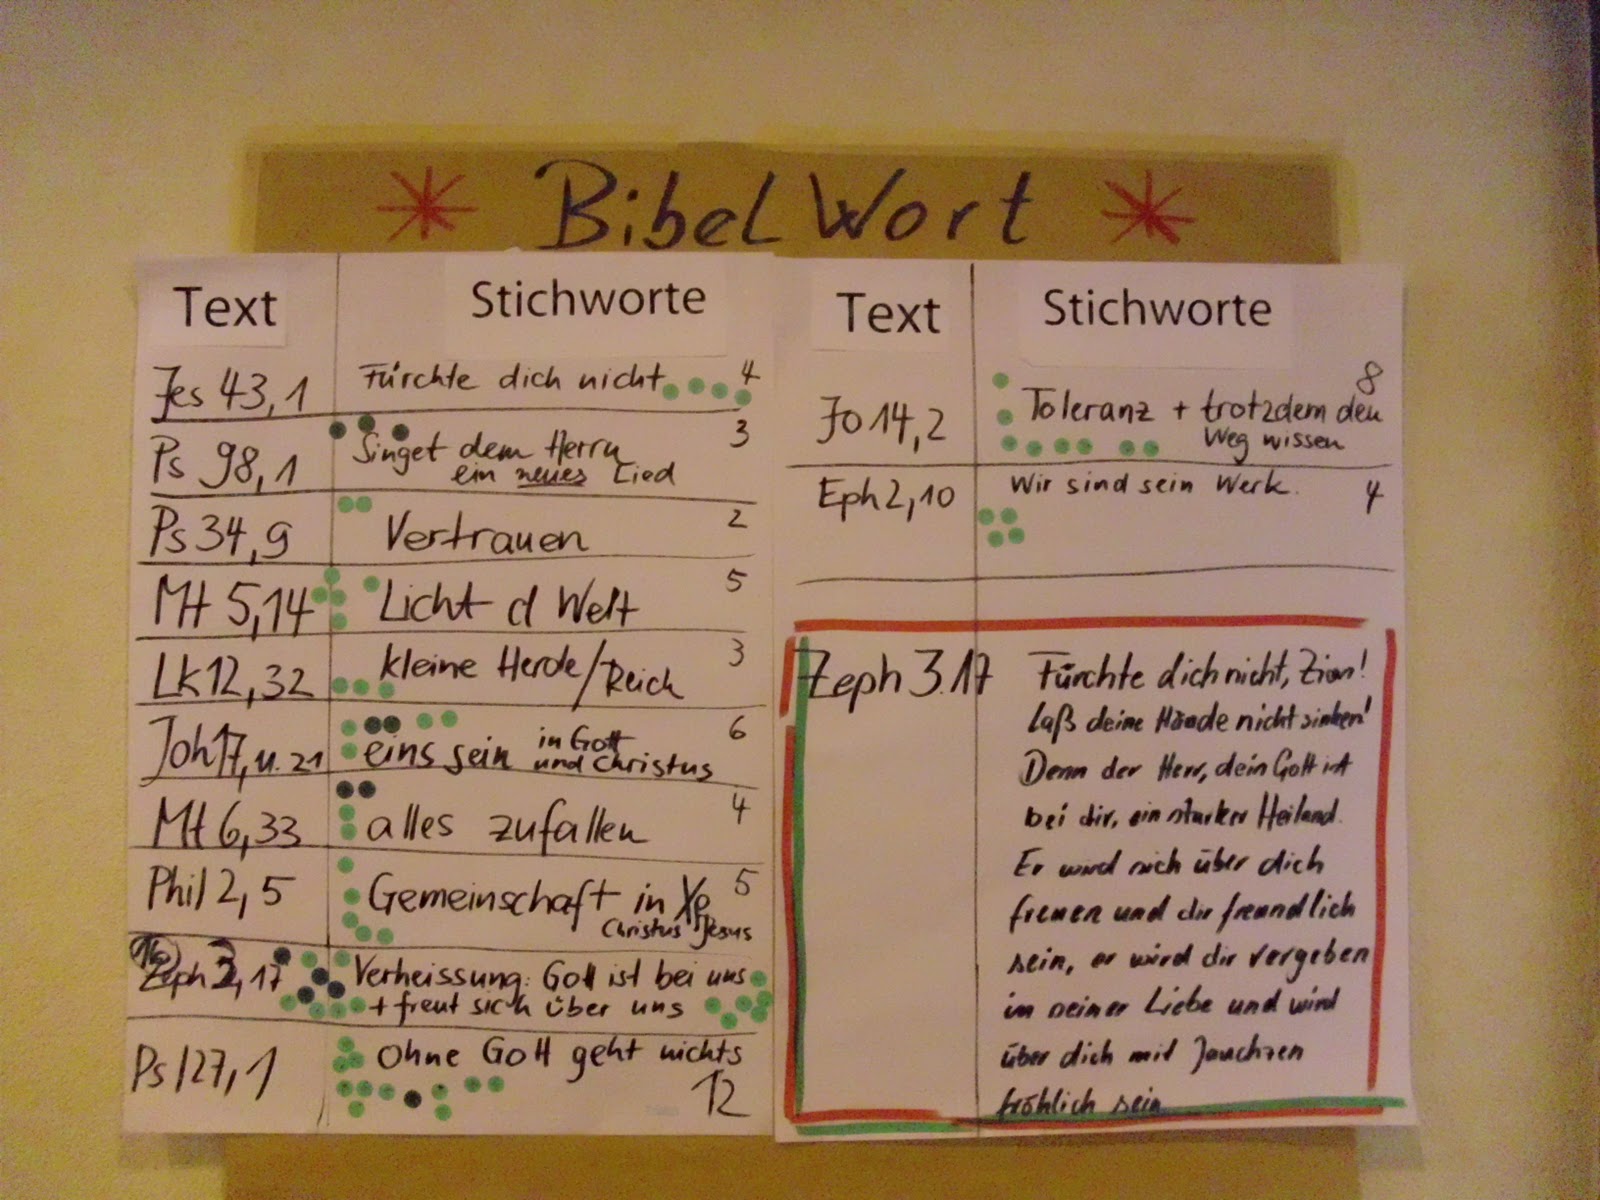 * Bibel Wort *
Text Stichworte
Jes 43,1 Fürchte dich nicht 4
Ps 98,1 Singet dem Herrn 3
ein neues Lied
Ps 34,9 Vertrauen 2
Mt 5,14 Licht d Welt 5
Lk 12,32 kleine Herde/Reich 3
Joh 17, u. 21 eins sein in Gott 6
und Christus
Mt 6,33 alles zufallen 4
Phil 2,5 Gemeinschaft in 5
Christus Jesus
16
Zeph 3,17 Verheissung: Gott ist bei uns
+ freut sich über uns
Ps 127,1 Ohne Gott geht nichts
12
Text Stichworte
8
Jo 14,2 Toleranz + trotzdem den
Weg wissen
Eph 2,10 Wir sind sein Werk. 4
Zeph 3.17 Fürchte dich nicht, Zion!
Laß deine Hände nicht sinken!
Denn der Herr, dein Gott ist
bei dir, ein starker Heiland.
Er wird sich über dich
freuen und dir freundlich
sein, er wird dir vergeben
in seiner Liebe und wird
über dich mit Jauchzen
fröhlich sein